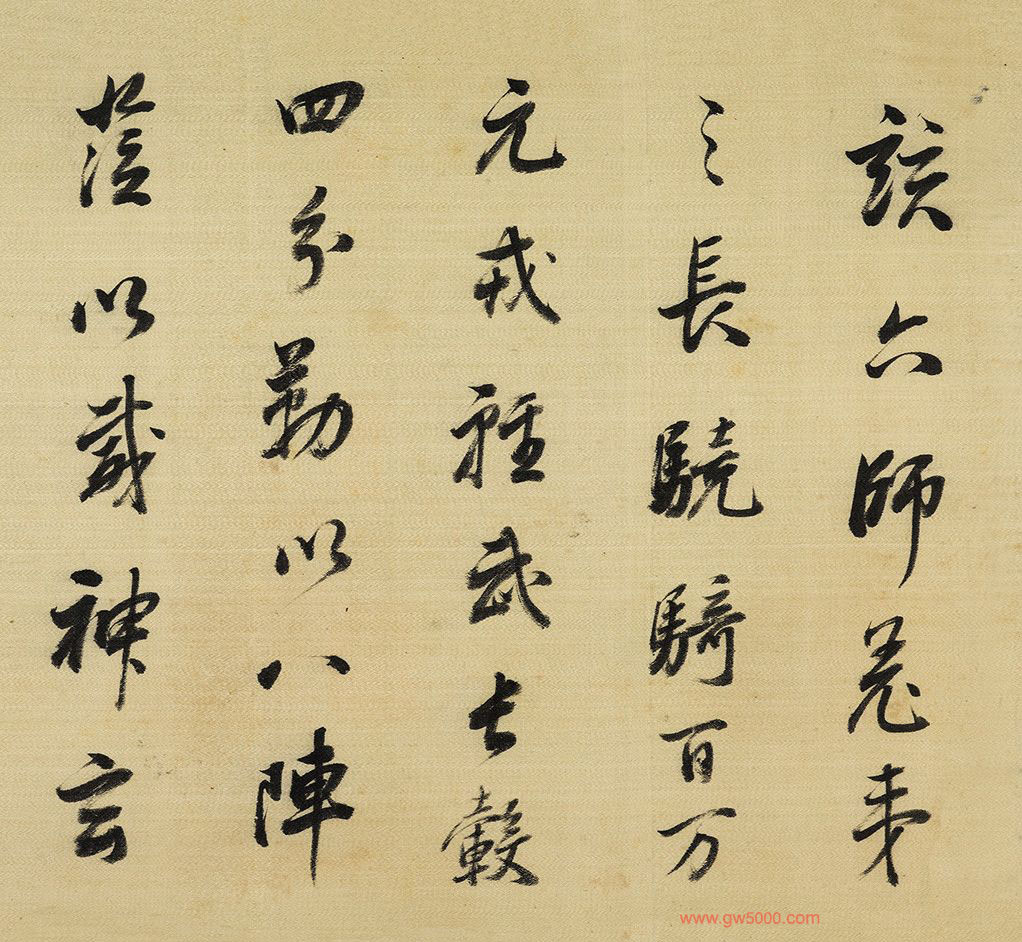 該六師羌夷
之長驍騎百万
元戎輕武長轂
四分勒以八陣
蒞以威神玄
www.gw5000.com